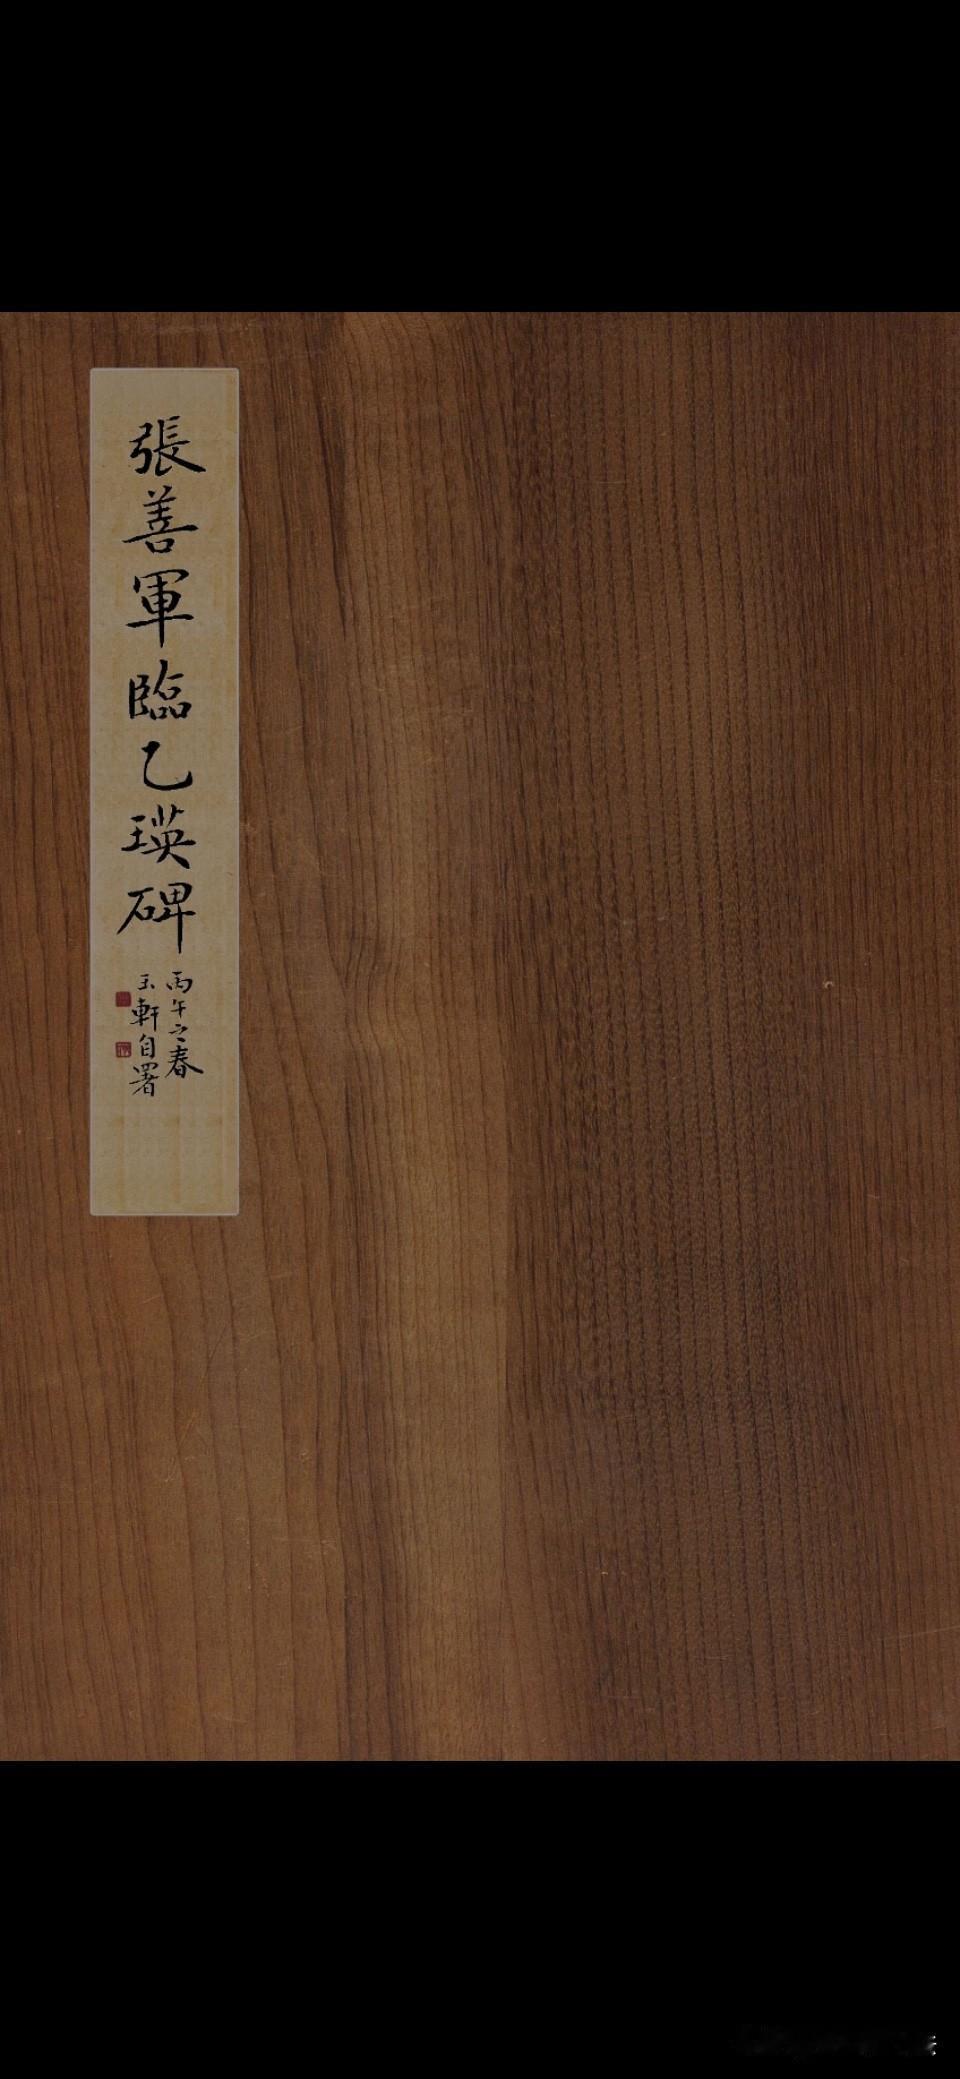 張善軍臨乙瑛碑
丙午之春
玉軒自署